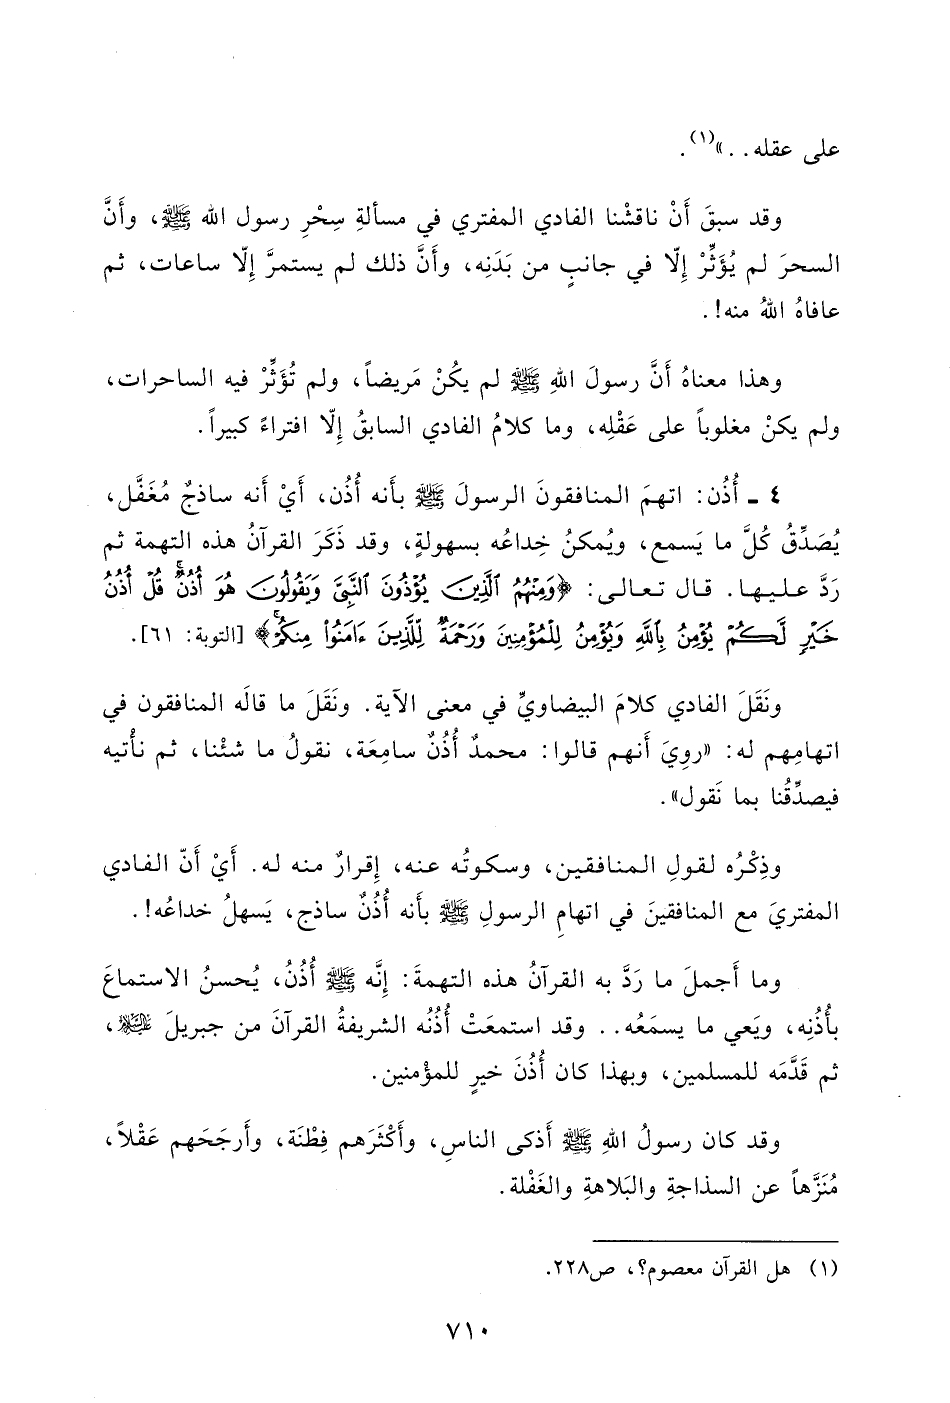 على عقله. . »(١).
وقد سبقَ أَنْ ناقشْنا الفادي المفتري في مسألةِ سِحْرِ رسول الله ﷺ، وأَنَّ
السحرَ لم يُؤَثِّرْ إِلّا في جانبٍ من بَدَنِه، وأَنَّ ذلك لم يستمرَّ إِلّا ساعات، ثم
عافاهُ اللهُ منه!.
وهذا معناهُ أَنَّ رسولَ اللهِ ﷺ لم يكُنْ مَريضاً، ولم تُؤَثِّرْ فيه الساحرات،
ولم يكنْ مغلوباً على عَقْلِه، وما كلامُ الفادي السابقُ إِلّا افتراءً كبيراً.
٤ ـ أُذُن: اتهمَ المنافقونَ الرسولَ ﷺ بأَنه أُذُن، أَيْ أنه ساذجٌ مُغَفَّل،
يُصَدِّقُ كُلَّ ما يَسمع، ويُمكنُ خِداعُه بسهولةٍ، وقد ذَكَرَ القرآنُ هذه التهمة ثم
رَدَّ عليها. قال تعالى: ﴿وَمِنْهُمُ ٱلَّذِينَ يُؤْذُونَ ٱلنَّبِىَّ وَيَقُولُونَ هُوَ أُذُنٌۚ قُلْ أُذُنُ
خَيْرٍ لَّكُمْ يُؤْمِنُ بِٱللَّهِ وَيُؤْمِنُ لِلْمُؤْمِنِينَ وَرَحْمَةٌ لِّلَّذِينَ ءَامَنُوا۟ مِنكُمْۚ﴾ [التوبة: ٦١].
ونَقَلَ الفادي كلامَ البيضاويِّ في معنى الآية. ونَقَلَ ما قالَه المنافقون في
اتهامِهم له: «روِيَ أَنهم قالوا: محمدٌ أُذُنٌ سامِعَة، نقولُ ما شئْنا، ثم نأْتيه
فيصدِّقُنا بما نَقول».
وذِكْرُه لقولِ المنافقين، وسكوتُه عنه، إِقرارٌ منه له. أَيْ أَنّ الفادي
المفتريَ مع المنافقينَ في اتهامِ الرسولِ ﷺ بأَنه أُذُنٌ ساذج، يَسهلُ خداعُه!.
وما أَجملَ ما رَدَّ به القرآنُ هذه التهمةَ: إِنَّه ﷺ أُذُنُ، يُحسنُ الاستماعَ
بأُذُنِه، ويَعي ما يسمَعُه. . وقد استمعَتْ أُذُنُه الشريفةُ القرآنَ من جبريلَ عليه السلام،
ثم قَدَّمَه للمسلمين، وبهذا كان أُذُنَ خيرٍ للمؤمنين.
وقد كان رسولُ اللهِ ﷺ أَذكى الناسِ، وأَكْثَرَهم فِطْنَة، وأَرجَحَهم عَقْلاً،
مُنَزَّهاً عن السذاجةِ والبَلاهةِ والغَفْلة.
(١) هل القرآن معصوم؟، ص٢٢٨.
٧١٠